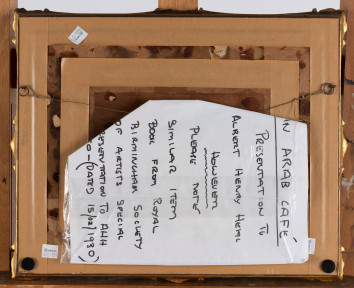 IN ARAB CAFÉ
PRESENTATION TO
ALBERT HENRY
HOWEVER
PLEASE NOTE
SIMILAR ITEM
BOOK FROM ROYAL
BIRMINGHAM SOCIETY
OF ARTISTS SPECIAL
PRESENTATION TO AHH
(DATED 15/02/1930)